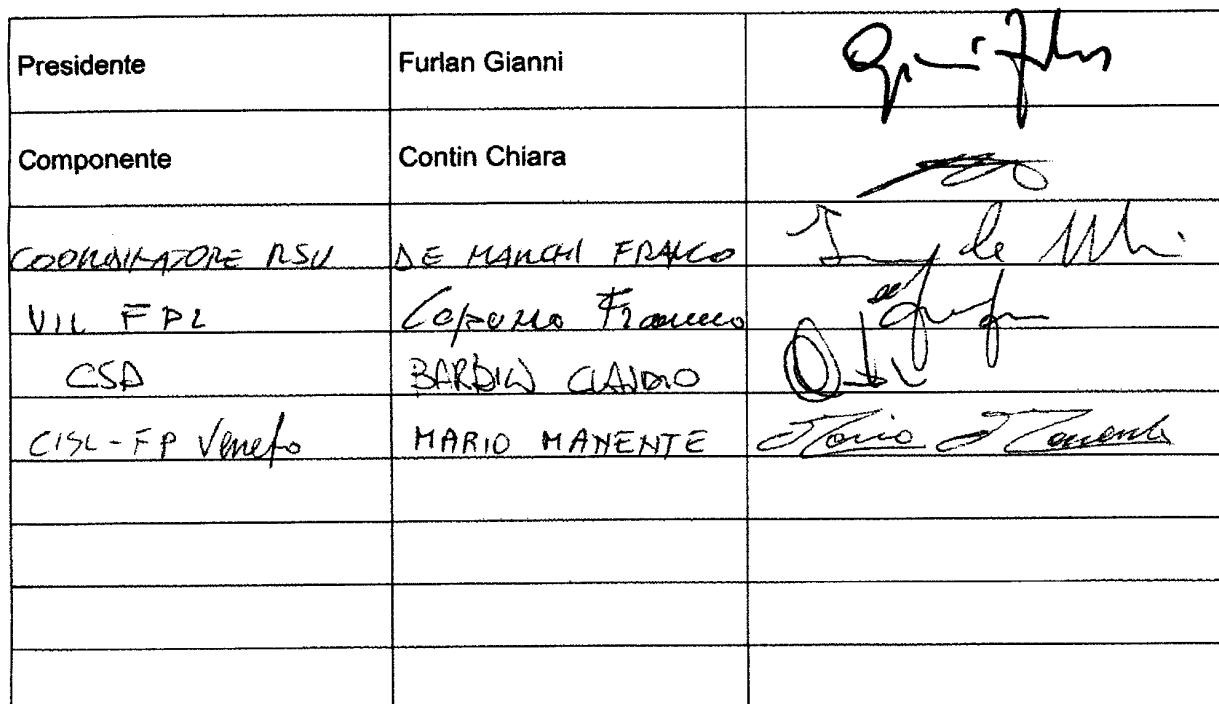 Presidente Furlan Gianni
Componente Contin Chiara
COORDINATORE RSU DE MARCHI FRANCO
UIL FPL Franco
CSA BARDIN CLAUDIO
CISL-FP Veneto MARIO MANENTE Mario Manente